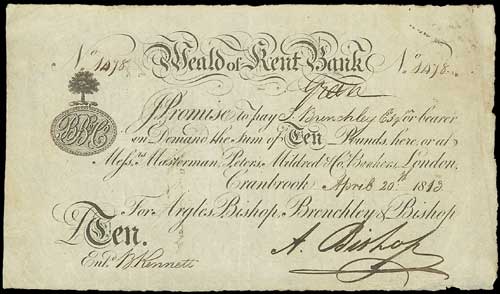 No 1478. Weald of Kent Bank No 1478.
I Promise to pay J. Brenchley Esqr or bearer
on Demand the Sum of Ten Pounds, here, or at
Messrs Masterman, Peters, Mildred & Co. Bankers, London.
Cranbrook April 20th 1813
For Argles, Bishop, Brenchley & Bishop
£Ten.
A. Bishop
Entd W Kennett